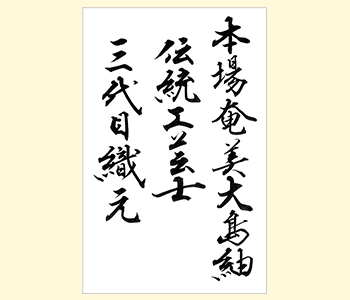 本場奄美大島紬
伝統工芸士
三代目織元